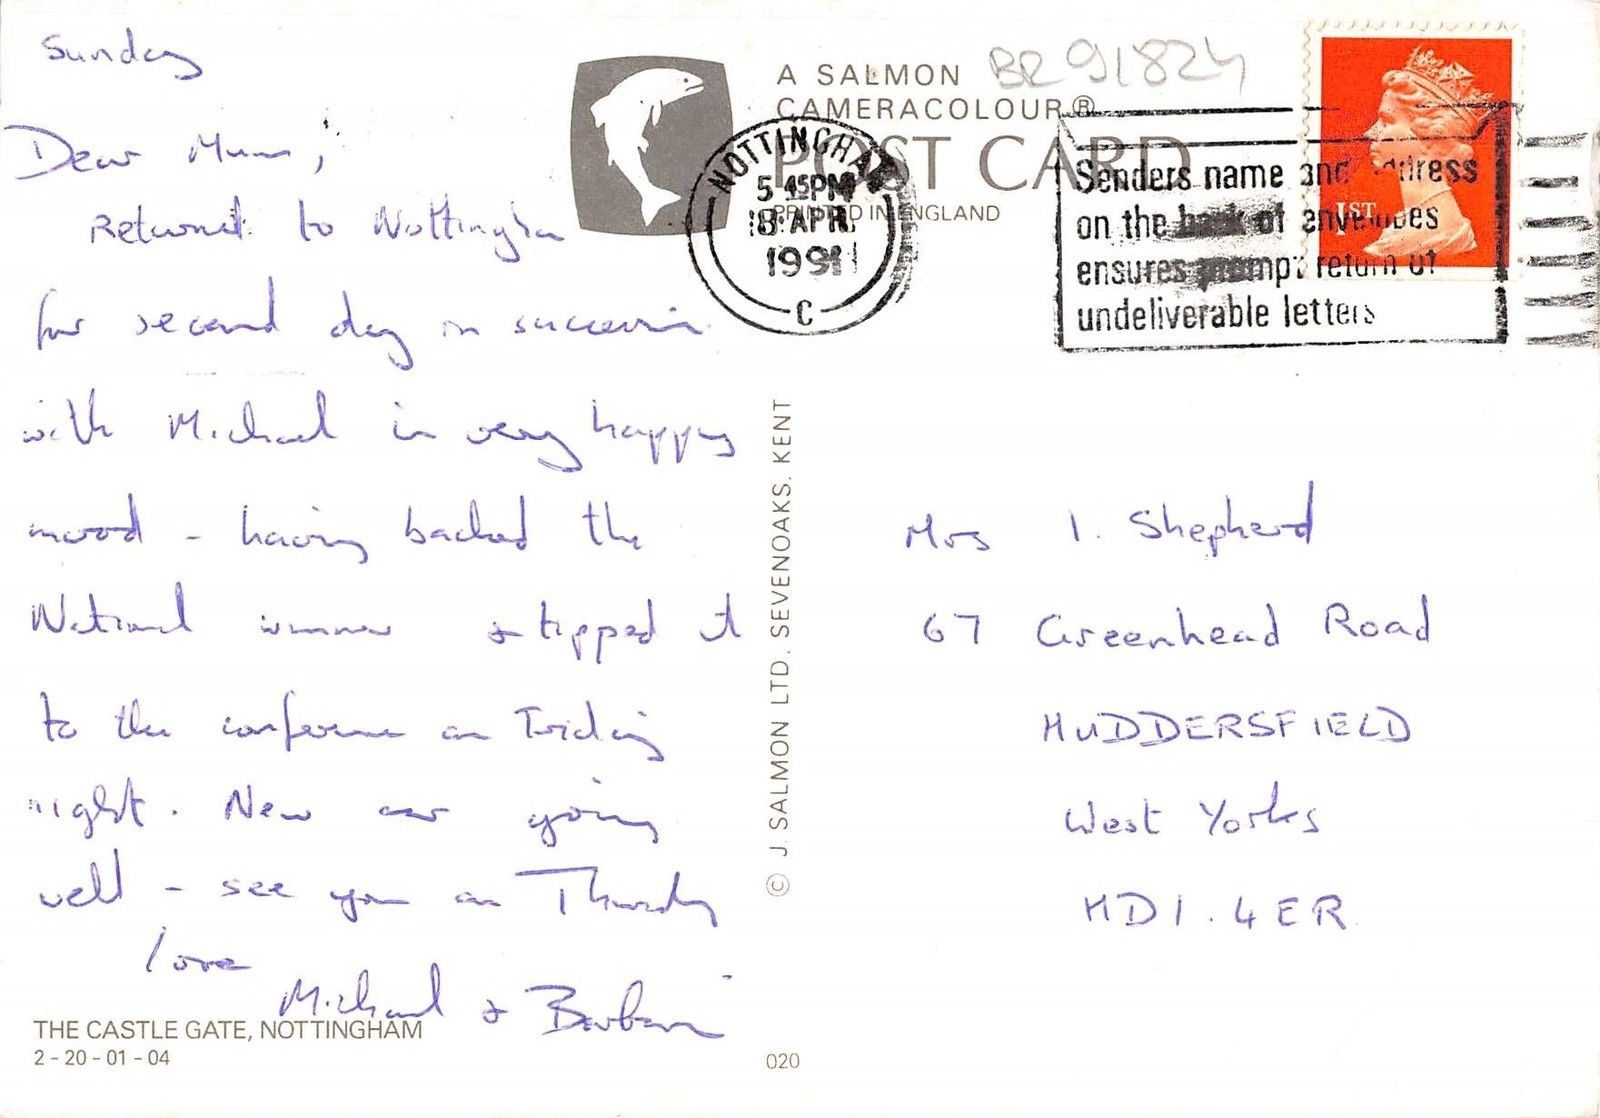 Sunday
Dear Mum,
Returned to Nottingham
for second day in succession
with Michael in very happy
mood - having backed the
National winner & tipped it
to the conference on Friday
night. New car going
well - see you on Thursday
love
Michael & Barbara
THE CASTLE GATE, NOTTINGHAM
2 - 20 - 01 - 04
A SALMON
CAMERACOLOUR®
POST CARD
PRINTED IN ENGLAND
BR 91824
NOTTINGHAM
5 45PM
8 APR
1991
C
Senders name and address
on the back of envelopes
ensures prompt return of
undeliverable letters
1ST
© J. SALMON LTD. SEVENOAKS. KENT
020
Mrs I. Shepherd
67 Greenhead Road
HUDDERSFIELD
West Yorks
HD1. 4ER